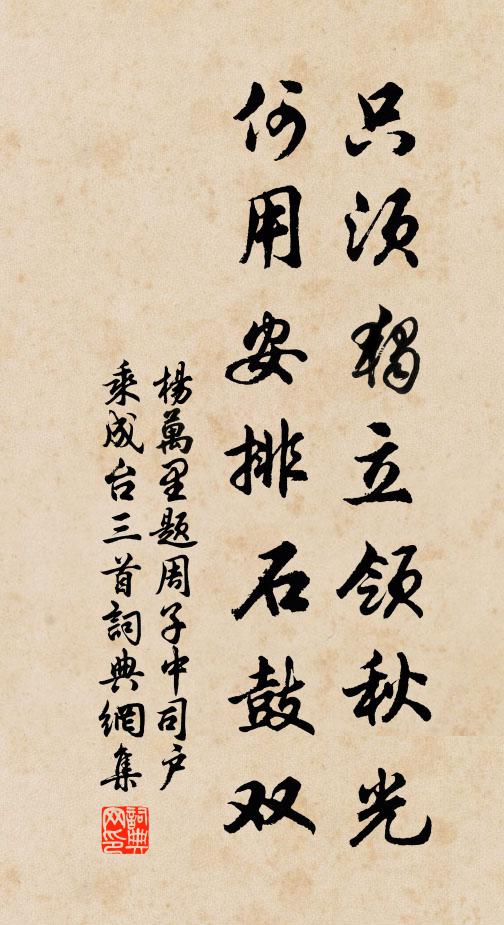 只须獨立领秋光
何用安排石鼓双
楊萬里题周子中司户
乘成台三首詞典網集
詞典网印